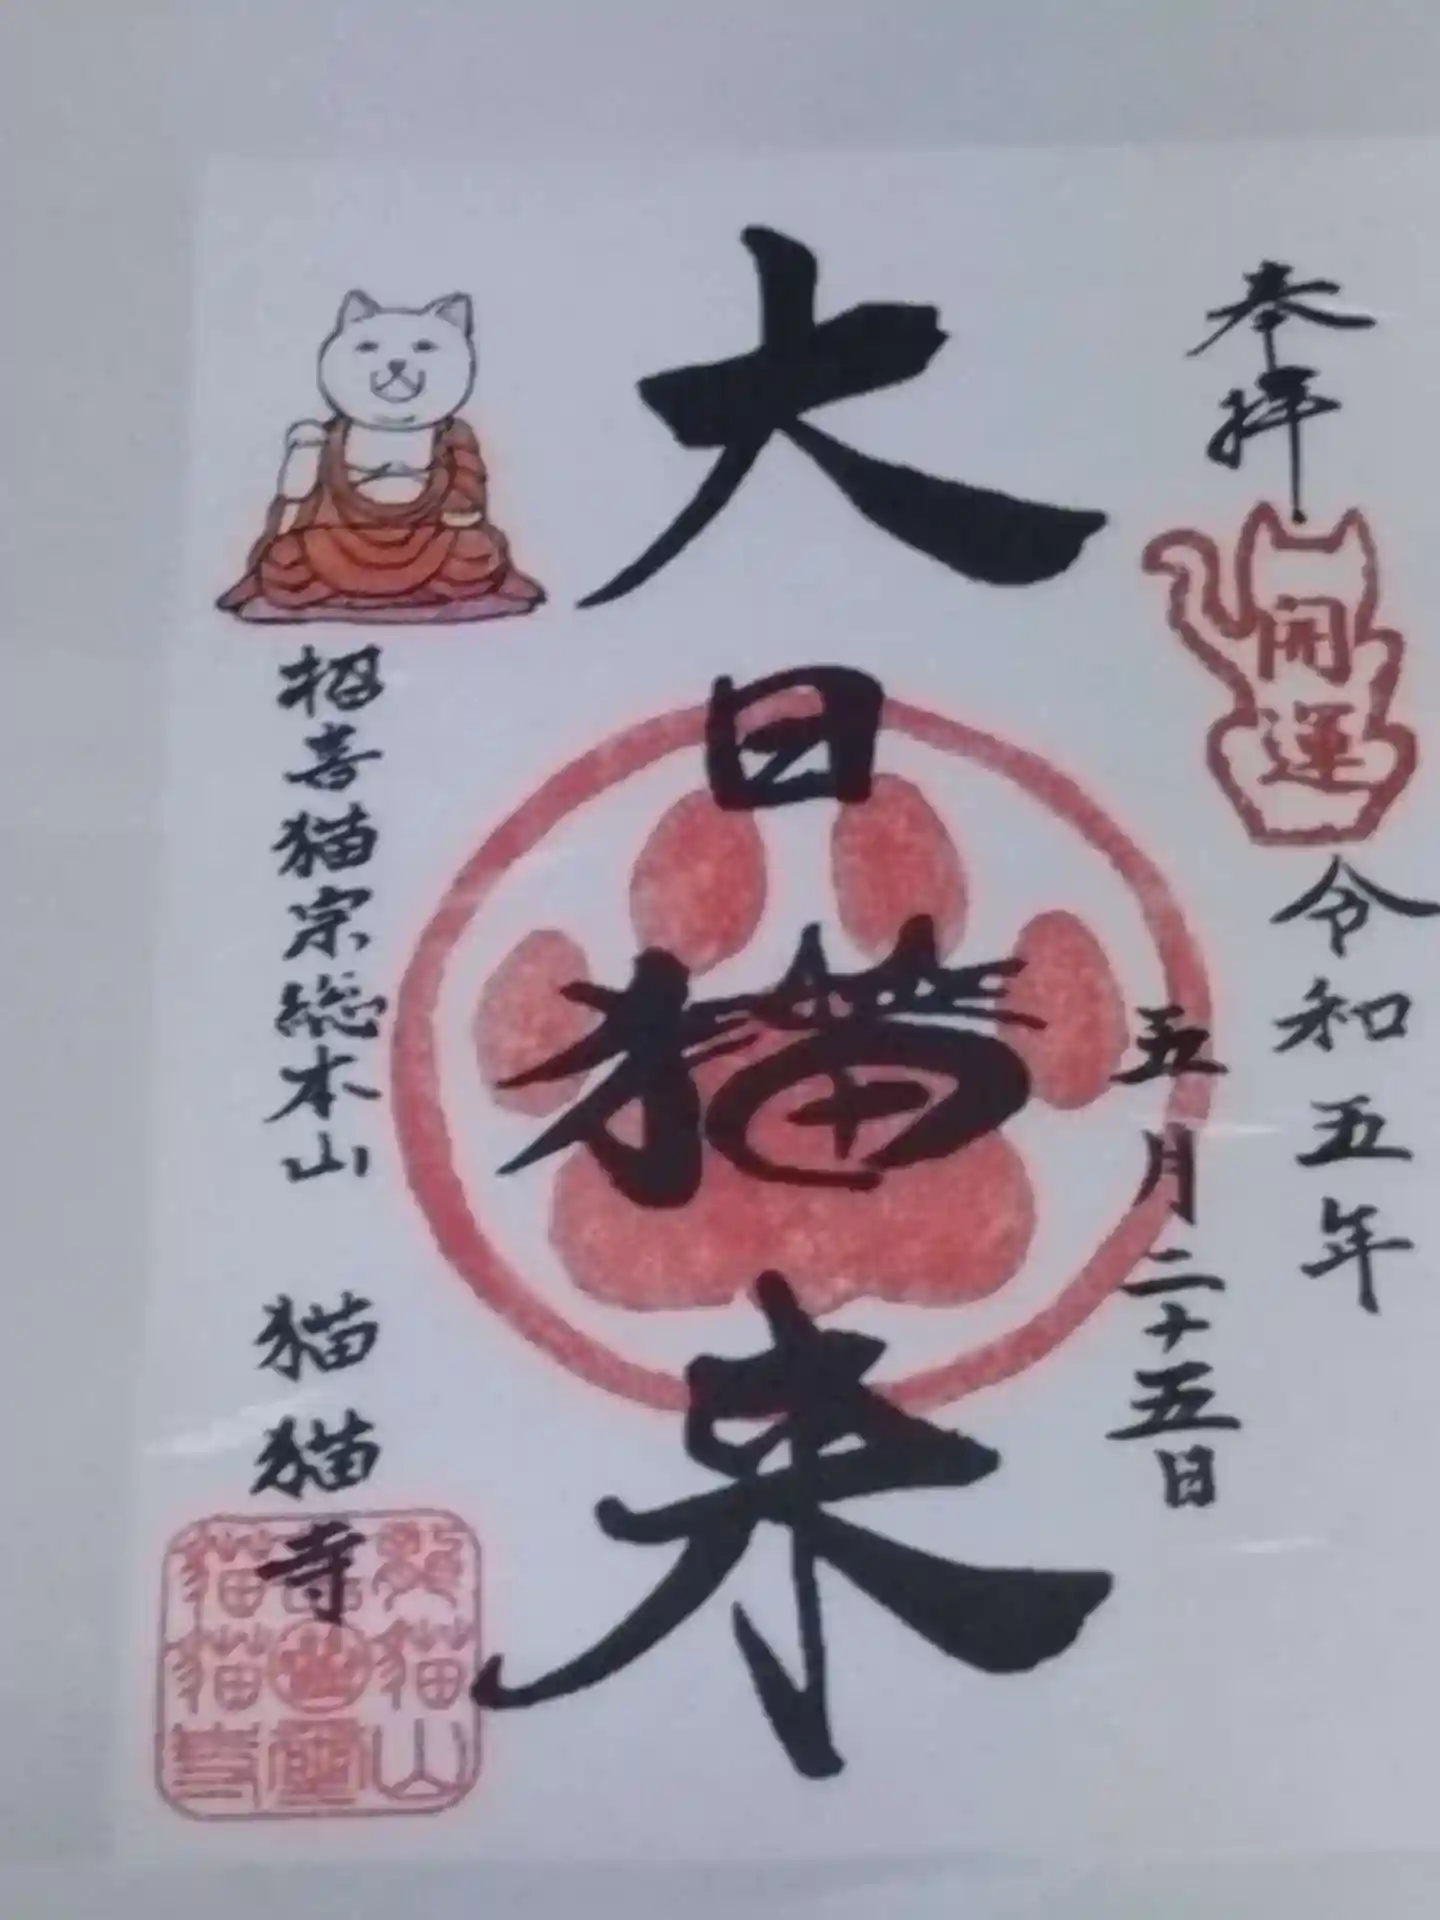 奉拝
開運
令和五年
五月二十五日
大日猫来
招喜猫宗総本山 猫猫寺
猫山
猫猫寺